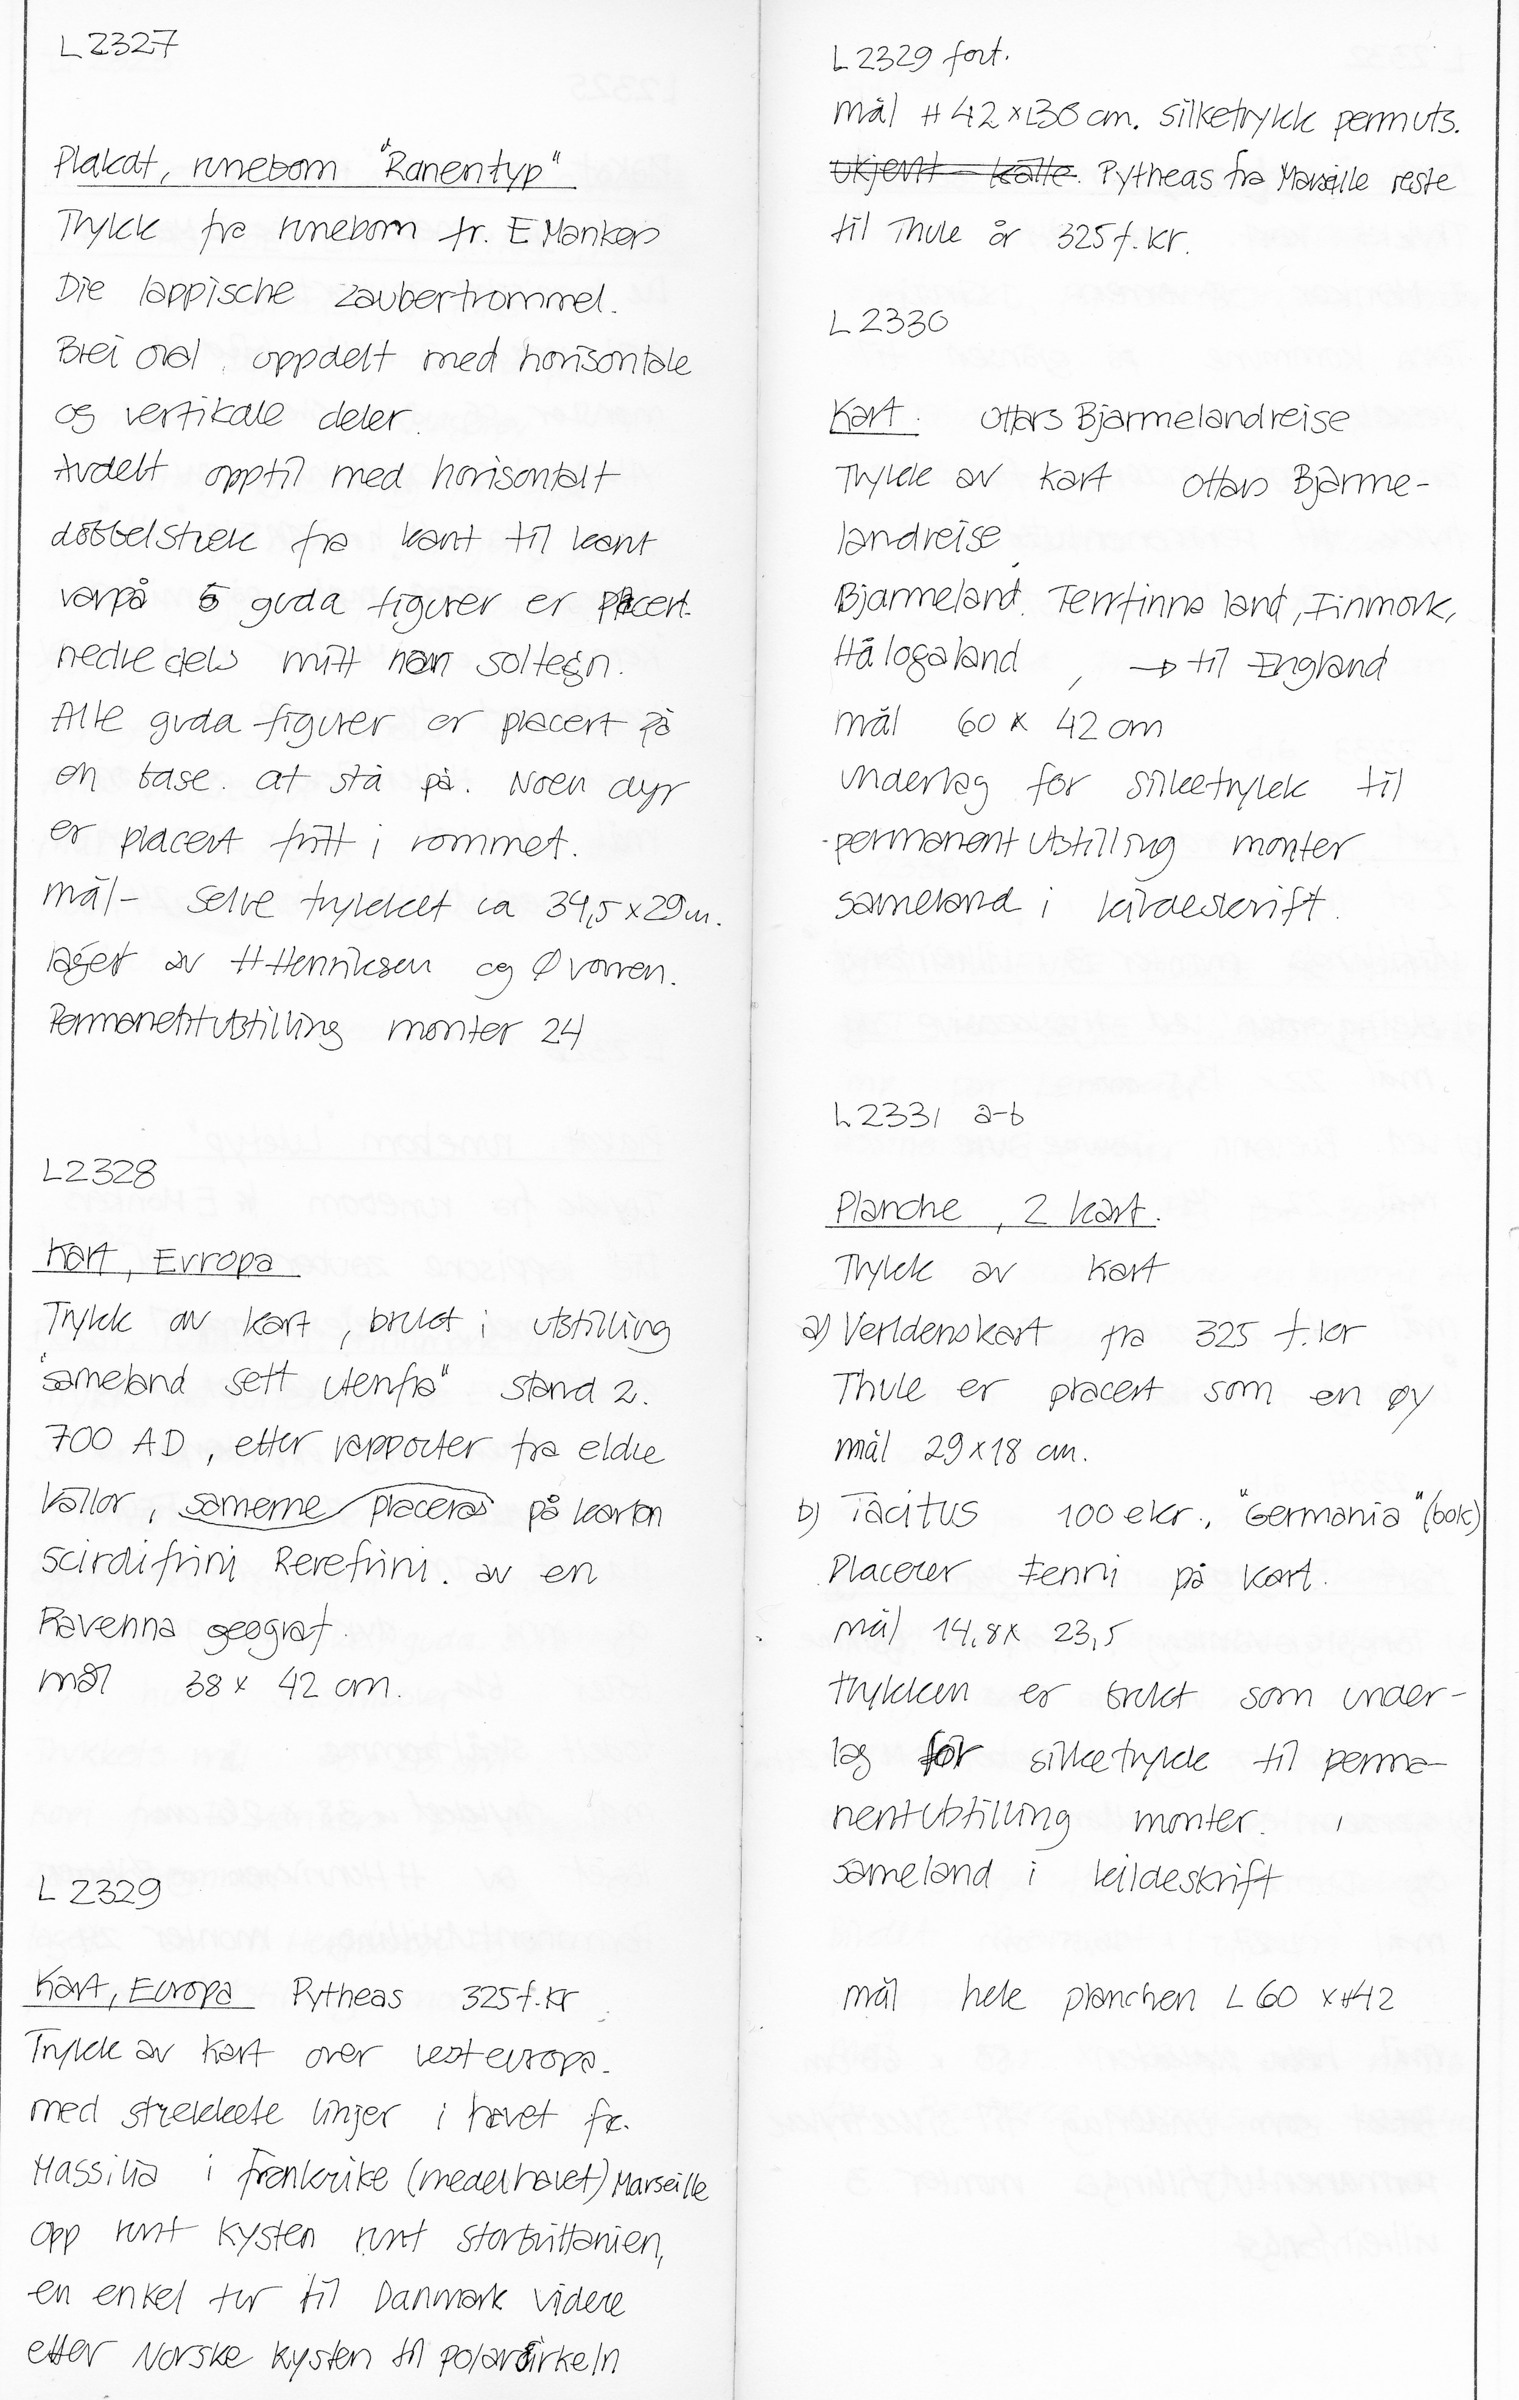 L 2327
Plakat, runebom "Ranentyp"
Trykk fra runebom fr. E Mankers
Die lappische zaubertrommel.
Brei oval, oppdelt med horisontale
og vertikale deler.
Avdelt opptil med horisontalt
dobbelstrek fra kant til kant
varpå 5 guda figurer er placert.
nedre dels mitt har soltegn.
Alle guda figurer er placert på
en base. at stå på. Noen dyr
er placert fritt i rommet.
mål - selve trykket ca 34,5 x 29 cm.
laget av H Henriksen og Ø Vorren.
Permanentutstilling monter 24
L2328
Kart, Evropa
Trykk av kart, brukt i utstilling
"sameland sett utenfra" stand 2.
700 AD, etter rapporter fra eldre
kallor, samerne placeras på karten
Scirdifrini Rerefrini. av en
Ravenna geograf.
mål 38 x 42 cm.
L 2329
Kart, Europa Pytheas 325 f.kr
Trykk av kart over vesteuropa.
med strekkete linjer i havet fr.
Massilia i frankrike (medelhavet) Marseille
opp runt kysten runt storbrittanien,
en enkel tur til Danmark videre
etter Norske kysten til polarcirkeln
L 2329 fort.
mål H 42 x L 30 cm. silketrykk permuts.
ukjent källe. Pytheas fra Marseille reste
til Thule år 325 f. kr.
L 2330
Kart. Ottars Bjarmelandreise
Trykk av kart Ottars Bjarme-
landreise
Bjarmeland, Terrfinna land, Finmork,
Hålogaland, → til England
mål 60 x 42 cm
underlag for silketrykk til
permanent utstilling monter
sameland i kildeskrift.
L 2331 a-b
Planche, 2 kart.
Trykk av kart
a) Verldenskart fra 325 f.kr
Thule er placert som en øy
mål 29 x 18 cm.
b) Tacitus 100 ekr., "Germania" (bok)
Placerer Fenni på kart.
mål 14,8 x 23,5
trykken er brukt som under-
lag för silketrykk til perma-
nentutstilling monter.
sameland i kildeskrift
mål hele planchen L 60 x H42